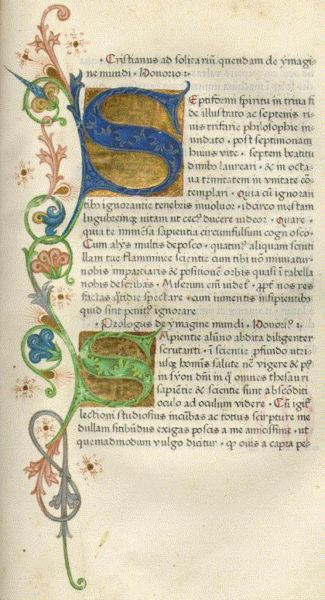 · Cristianus ad solitariũ quendam de ymagi
ne mundi · Honorio ꝛ·
Septiformi spiritu in trina fi
de illustrato ac septenis ri
uis trifarie philosophie in
undato · post septimonam
huius vite · septem beatitu
dinibo laurean · & in octa
ua trinitatem in vnitate cõ
templari · Quia cũ ignoran
tibi ignorantie tenebris inuoluor · idcirco mestam
lugubremqȝ vitam ut cecꝰ ducere videor · Quare ·
quia te immẽsa sapientia circumfulsum cognosco ·
Cum alys multis deposco · quatinꝰ aliquam scinti
llam tue flammiuice scientie cum tibi nõ minuatur
nobis impartiaris & positionẽ orbis quasi ĩ tabella
nobis describas · Miserum cnĩ videtꝰ · ꝓpt̃ nos res
factas q̃tidie spectare · cum iumentis insipientibꝰ
quid sint penitꝰ ignorare
· Prologus de ymagine mundi · Honorĩ ꝛ·
Sapientie alũno abdita diligenter
scrutanti · ĩ scientie ꝓfundo utri
usqȝ homĩs salute nẽ vigere & pꝰ
in syon dñm ĩ q̃ omnes thesauri
sapiẽtie & scientie sunt abscõditi
oculo ad oculum videre · Cũ ĩgit̃
lectioni studiosius incũbas ac totius scripture me
dullam sitibũdus exigas poscis a me amicissime · ut
quemadmodum vulgo dicitur · ꝙ ouis a capra pe